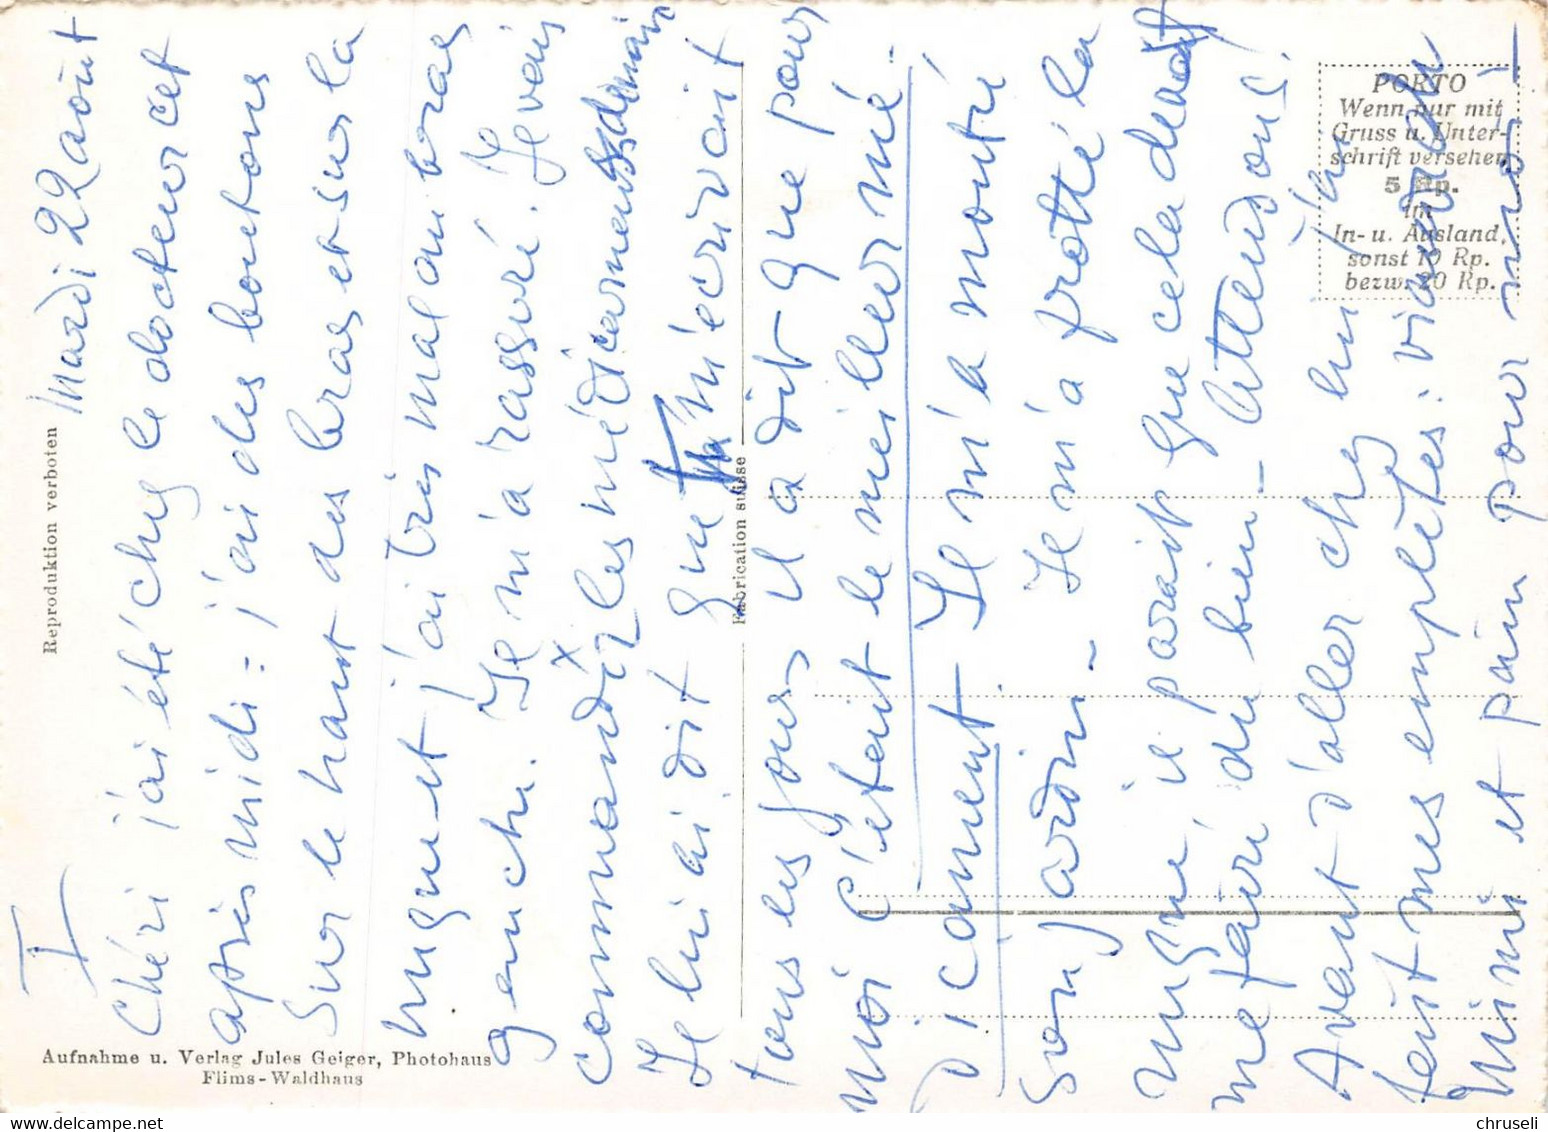 I
Mardi 22 août
Chéri j'ai été chez le docteur cet
après midi = j'ai des boutons
sur le haut des bras et sur la
nuque et j'ai très mal au bras
gauche. Il m'a rassuré. Je vais
commander les médicaments demain
Je lui ai dit que tu m'écrivait
tous les jours il a dit que pour
moi c'était le meilleur mé-
dicament - Il m'a montré
son jardin - Il m'a frotté la
nuque il parait que cela devrait
me faire du bien - Attendons!
Avant d'aller chez lui j'ai
fait mes emplètes: viande
Mimi et pain pour moi -
Reproduktion verboten
Fabrication suisse
Aufnahme u. Verlag Jules Geiger, Photohaus
Flims-Waldhaus
PORTO
Wenn nur mit
Gruss u. Unter-
schrift versehen
5 Rp.
im
In- u. Ausland,
sonst 10 Rp.
bezw. 20 Rp.
chruseli